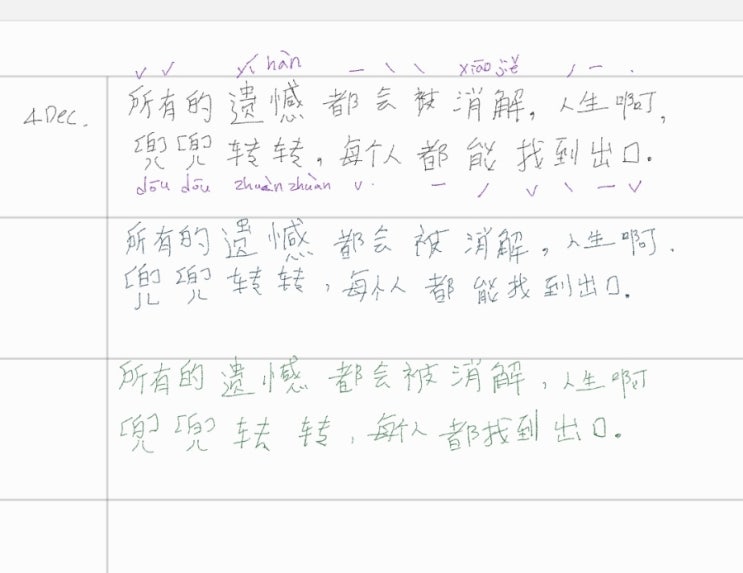 hàn xiāo jiě
4 Dec.
所有的遗憾都会被消解,人生啊,
兜兜转转,每个人都能找到出口.
dōu dōu zhuàn zhuàn
所有的遗憾都会被消解,人生啊.
兜兜转转,每个人都能找到出口.
所有的遗憾都会被消解,人生啊
兜兜转转,每个人都找到出口.